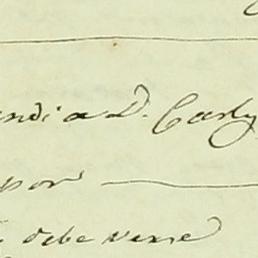 endi a D. Carly
por
debe verse